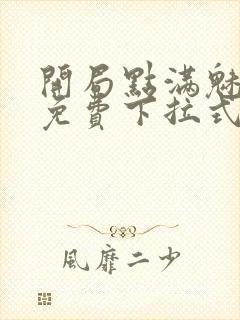 開局點滿魅
免費下拉式
風靡二少